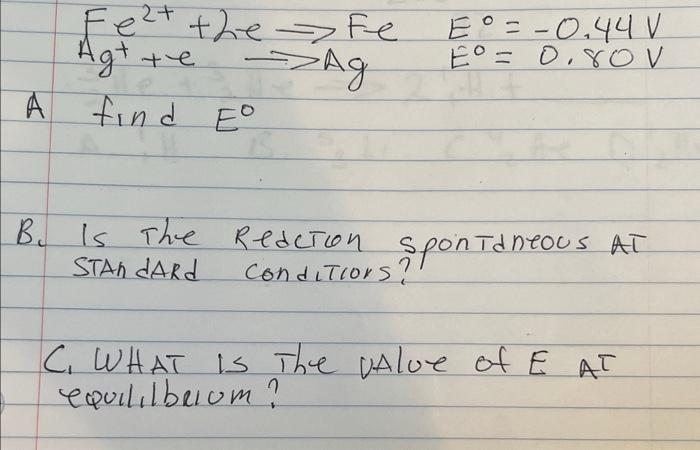 Fe²⁺ + 2e ⟹ Fe E° = -0.44 V
Ag⁺ + e ⟹ Ag E° = 0.80 V
A find E°
B. Is The Reaction spontaneous AT
STANdARd conditions?
C. WHAT is The value of E AT
equililbrium?